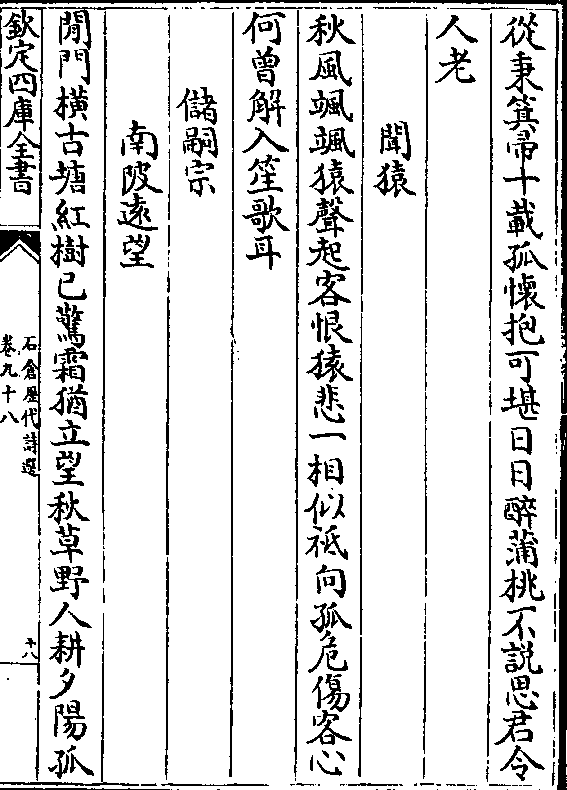 從秉箕帚十載孤懷抱可堪日日醉蒲桃不説思君令
人老
聞猿
秋風颯颯猿聲起客恨猿悲一相似祗向孤危傷客心
何曾解入笙歌耳
儲嗣宗
南陂遠望
閒門横古塘紅樹已驚霜猶立望秋草野人耕夕陽孤
欽定四庫全書
石倉歴代詩選
卷九十八
十八